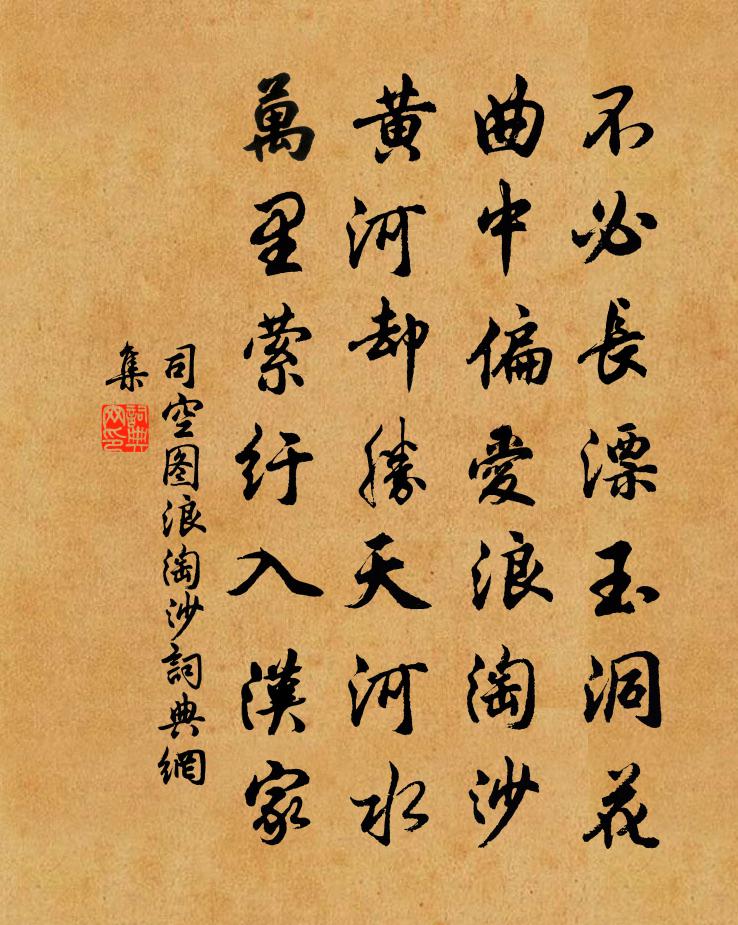 不必長漂玉洞花
曲中偏愛浪淘沙
黄河却勝天河水
萬里縈紆入漢家
司空图浪淘沙詞典網
集
詞典網印